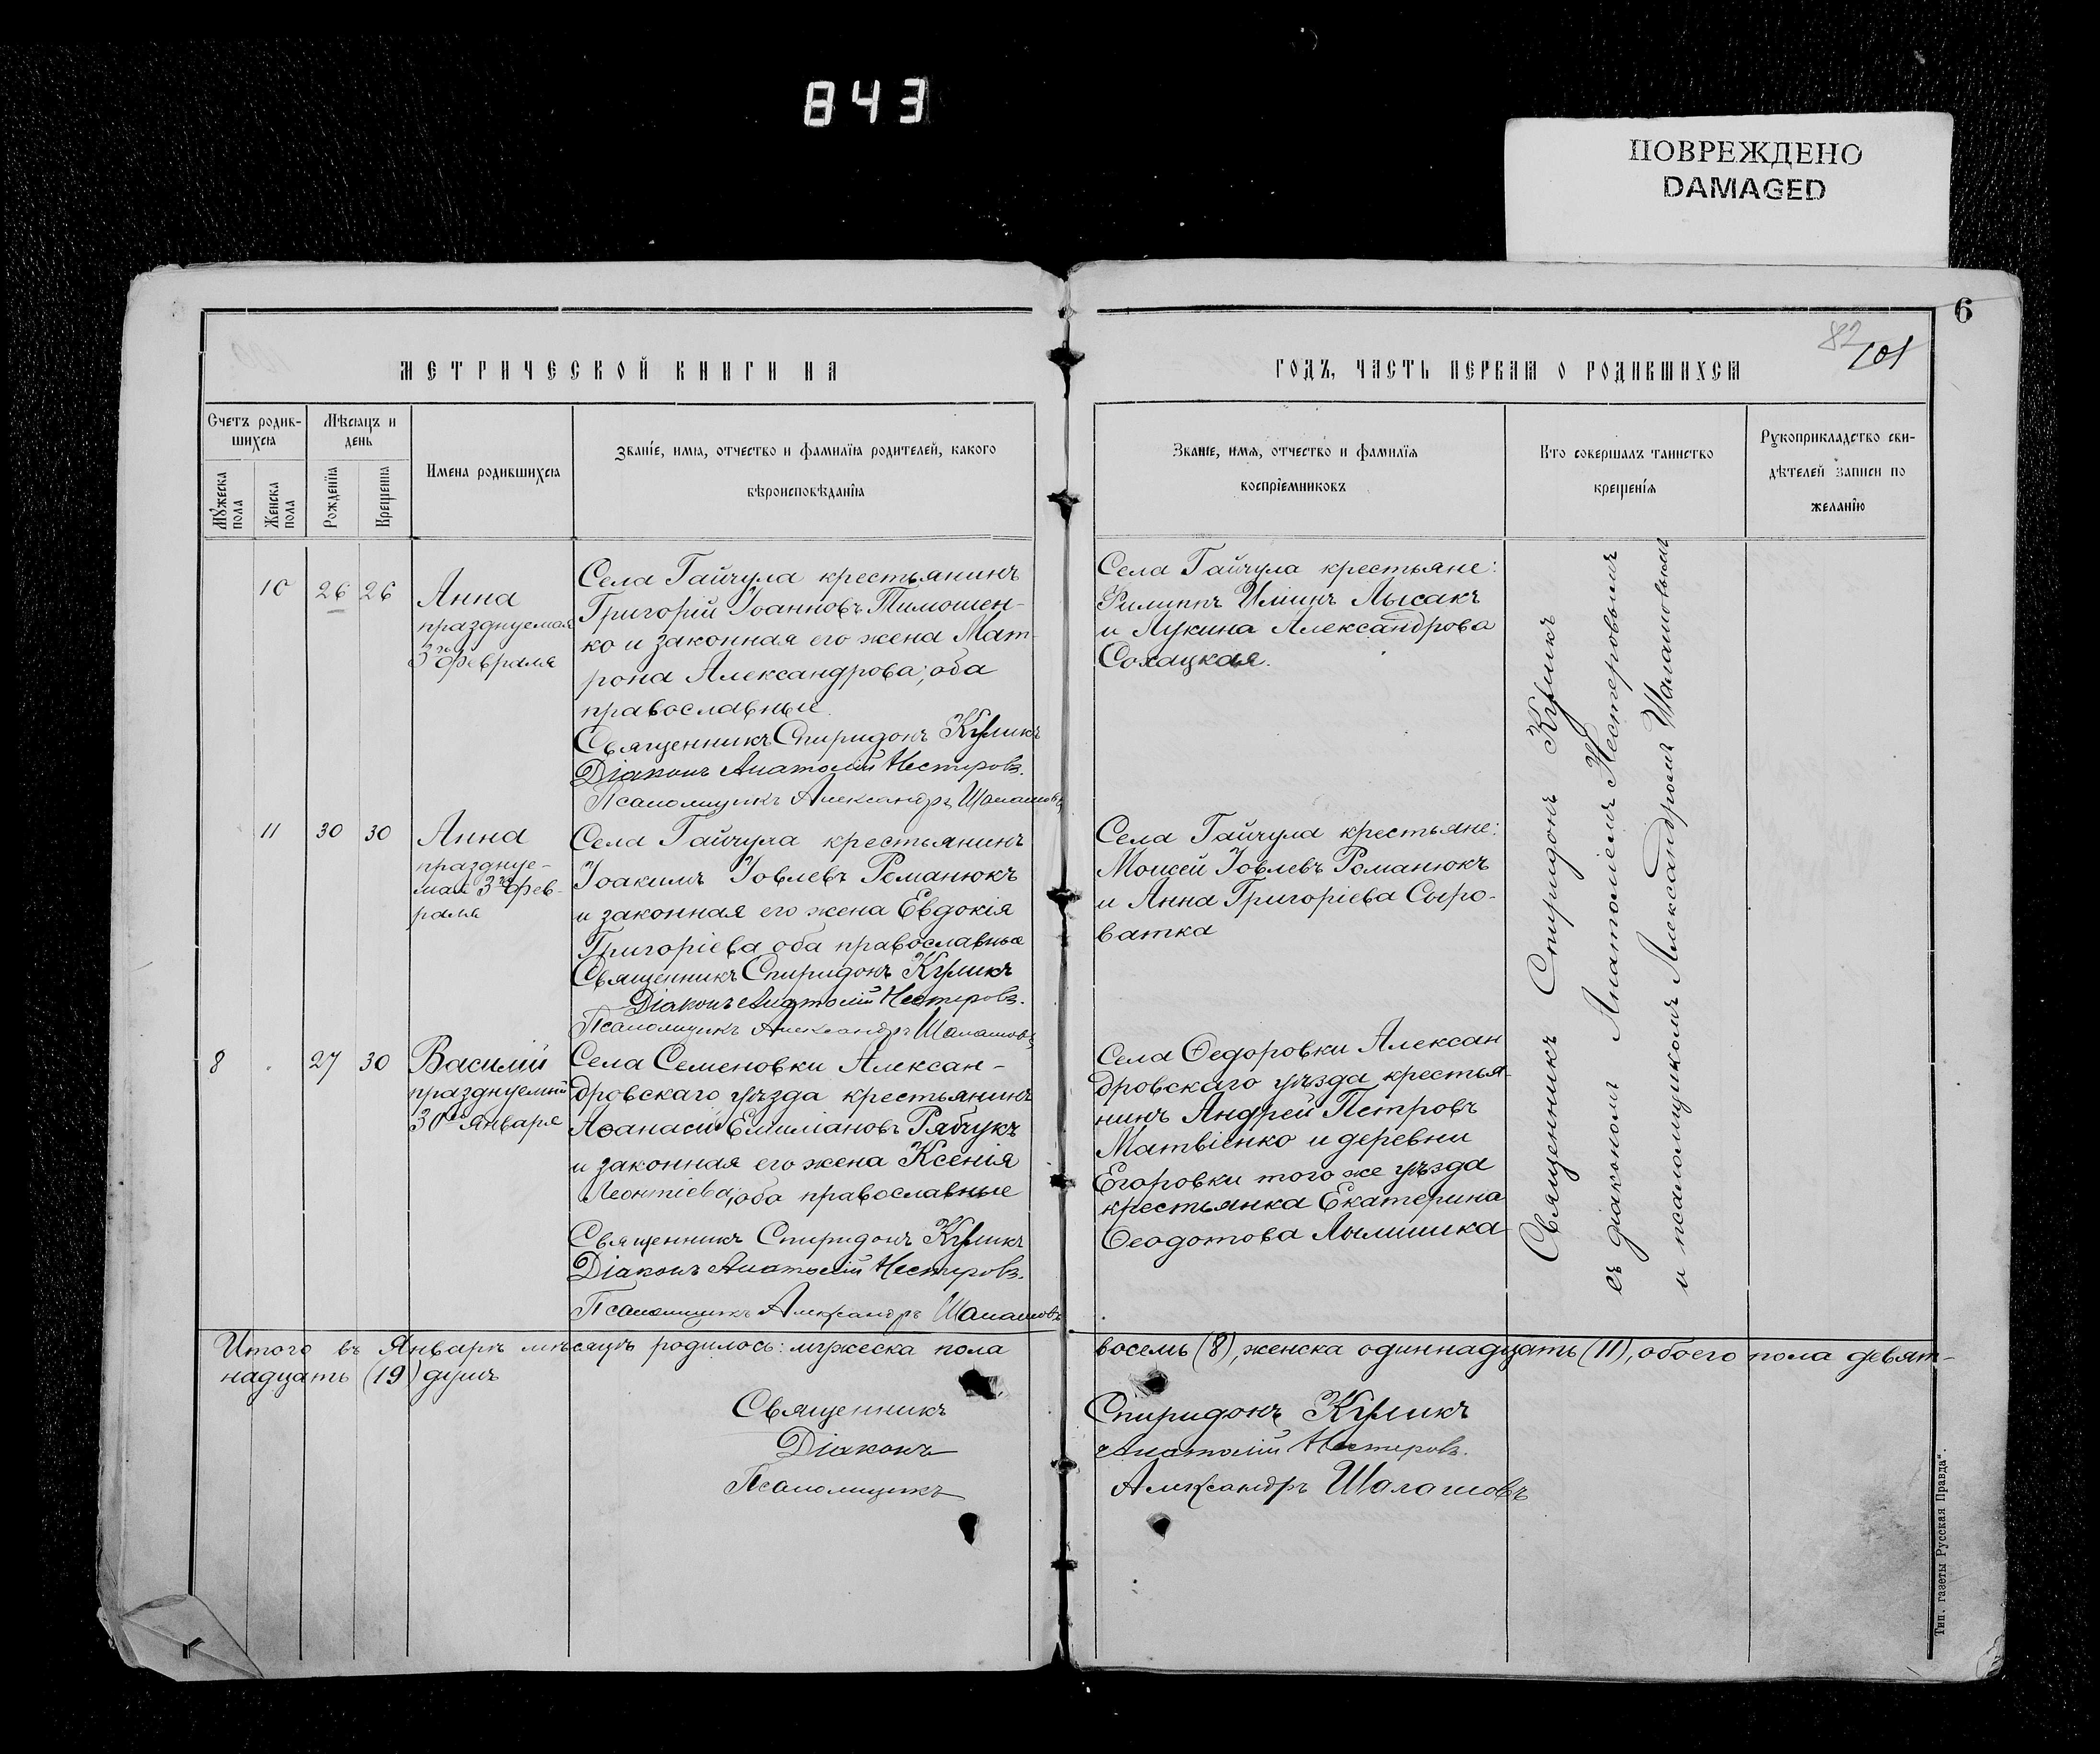 843
ПОВРЕЖДЕНО
DAMAGED
6
82
101
МЕТРИЧЕСКОЙ КНИГИ НА
ГОДЪ, ЧАСТЬ ПЕРВАЯ О РОДИВШИХСЯ
Счетъ родив-
шихся
Мѣсяцъ и
день
Мужеска
пола
Женска
пола
Рожденія
Крещенія
Имена родившихся
Званіе, имя, отчество и фамилія родителей, какого
вѣроисповѣданія
Званіе, имя, отчество и фамилія
воспріемниковъ
Кто совершалъ таинство
крещенія
Рукоприкладство сви-
дѣтелей записи по
желанію
10 26 26
Анна
празднуемая
3го февраля
Села Гайчула крестьянинъ
Григорій Іоанновъ Тимошен-
ко и законная его жена Мат-
рона Александрова, оба
православные.
Священникъ Спиридонъ Куликъ
Діаконъ Анатолій Нестеровъ.
Псаломщикъ Александръ Шалашовъ
Села Гайчула крестьяне:
Филиппъ Ильинъ Лысакъ
и Лукина Александрова
Сохацкая.
11 30 30
Анна
празднуе-
мая 3го фев-
раля
Села Гайчула крестьянинъ
Іоакимъ Іовлевъ Романюкъ
и законная его жена Евдокія
Григоріева оба православные
Священникъ Спиридонъ Куликъ
Діаконъ Анатолій Нестеровъ.
Псаломщикъ Александръ Шалашовъ
Села Гайчула крестьяне:
Моисей Іовлевъ Романюкъ
и Анна Григоріева Сыро-
ватка
8 27 30
Василій
празднуемый
30го Января
Села Семеновки Алексан-
дровскаго уѣзда крестьянинъ
Аѳанасій Емиліановъ Рябчукъ
и законная его жена Ксенія
Леонтіева, оба православные
Священникъ Спиридонъ Куликъ
Діаконъ Анатолій Нестеровъ.
Псаломщикъ Александръ Шалашовъ
Села Ѳедоровки Алексан
дровскаго уѣзда крестья-
нинъ Андрей Петровъ
Матвіенко и деревни
Егоровки того же уѣзда
крестьянка Екатерина
Ѳеодотова
Священникъ Спиридонъ Куликъ
съ діакономъ Анатоліемъ Нестеровымъ
и псаломщикомъ Александромъ Шалашовымъ
Итого въ Январѣ мѣсяцѣ родилось: мужеска пола восемь (8), женска одиннадцать (11), обоего пола девят-
надцать (19) душъ
Священникъ Спиридонъ Куликъ
Діаконъ Анатолій Нестеровъ.
Псаломщикъ Александръ Шалашовъ
Тип. газеты Русская Правда".